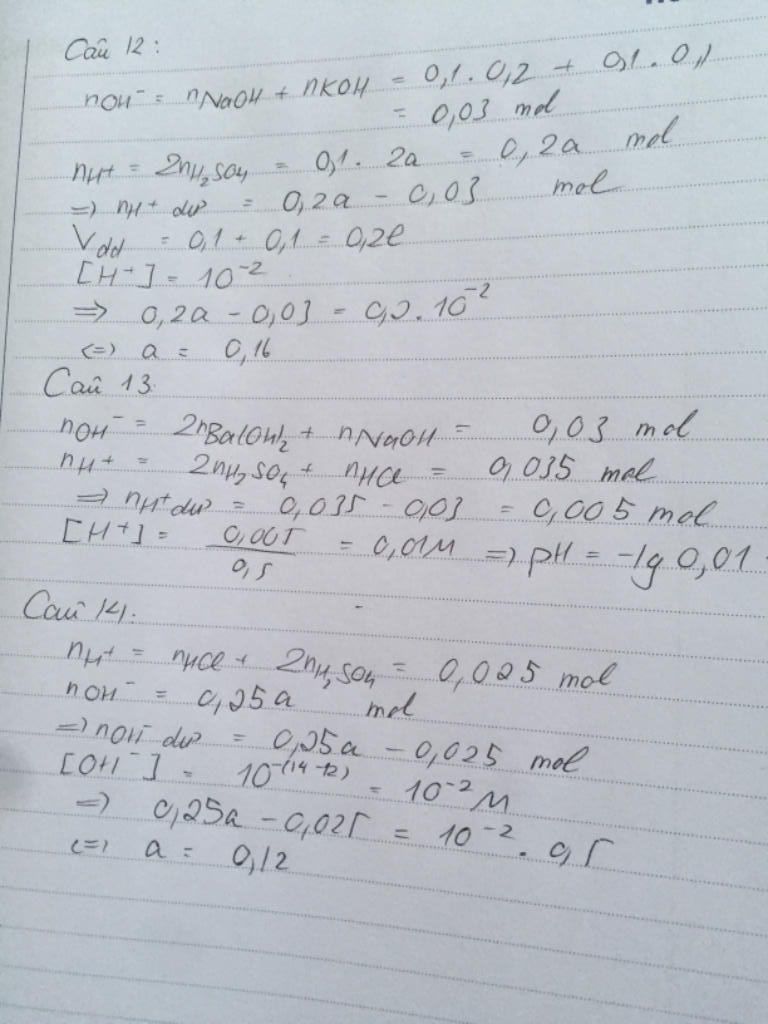 Câu 12:
nOH⁻ = nNaOH + nKOH = 0,1. 0,2 + 0,1. 0,1
= 0,03 mol
nH+ = 2nH₂SO4 = 0,1. 2a = 0,2a mol
=) nH+ dư = 0,2a - 0,03 mol
Vdd = 0,1 + 0,1 = 0,2l
[H+] = 10⁻²
=> 0,2a - 0,03 = 0,2.10⁻²
<=> a = 0,16
Câu 13.
nOH⁻ = 2nBa(OH)₂ + nNaOH = 0,03 mol
nH+ = 2nH₂SO₄ + nHCl = 0,035 mol
=> nH+ dư = 0,035 - 0,03 = 0,005 mol
[H+] = 0,005/0,5 = 0,01M => pH = -lg 0,01
Câu 14.
nH+ = nHCl + 2nH₂SO4 = 0,025 mol
nOH⁻ = 0,25a mol
=> nOH⁻ dư = 0,25a - 0,025 mol
[OH⁻] = 10⁻⁽¹⁴⁻¹²⁾ = 10⁻² M
=> 0,25a - 0,025 = 10⁻² . 0,5
<=> a = 0,12